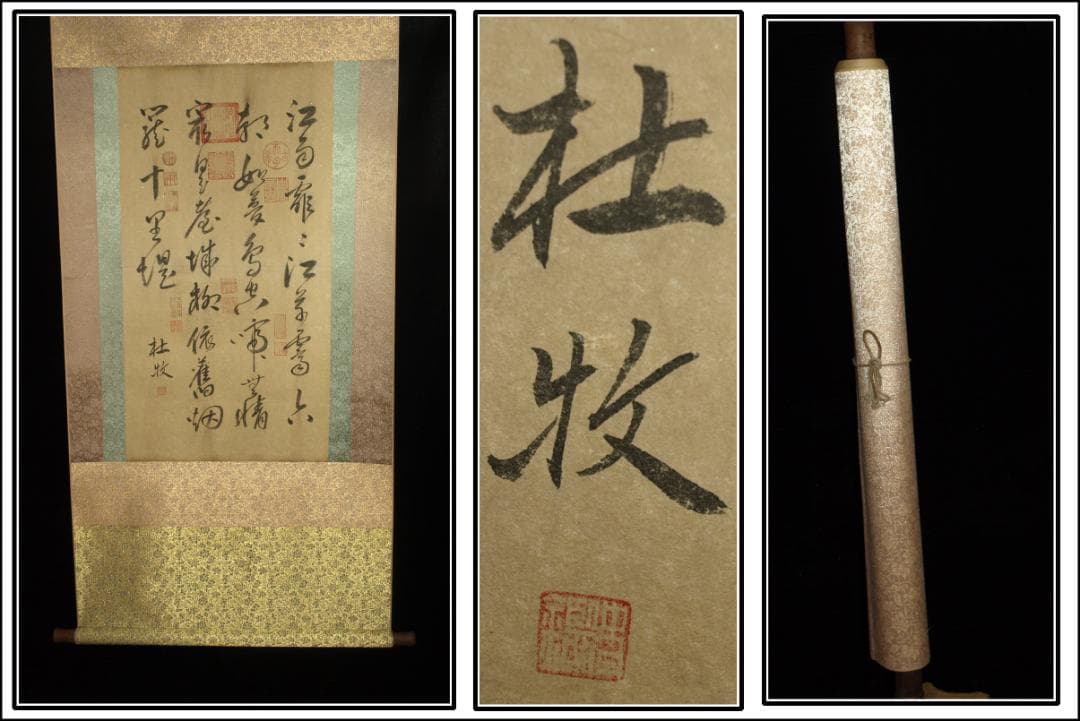 江雨霏〻江草齊六
朝如夢鳥空啼無情
最是臺城柳依舊烟
籠十里堤
杜牧
杜牧